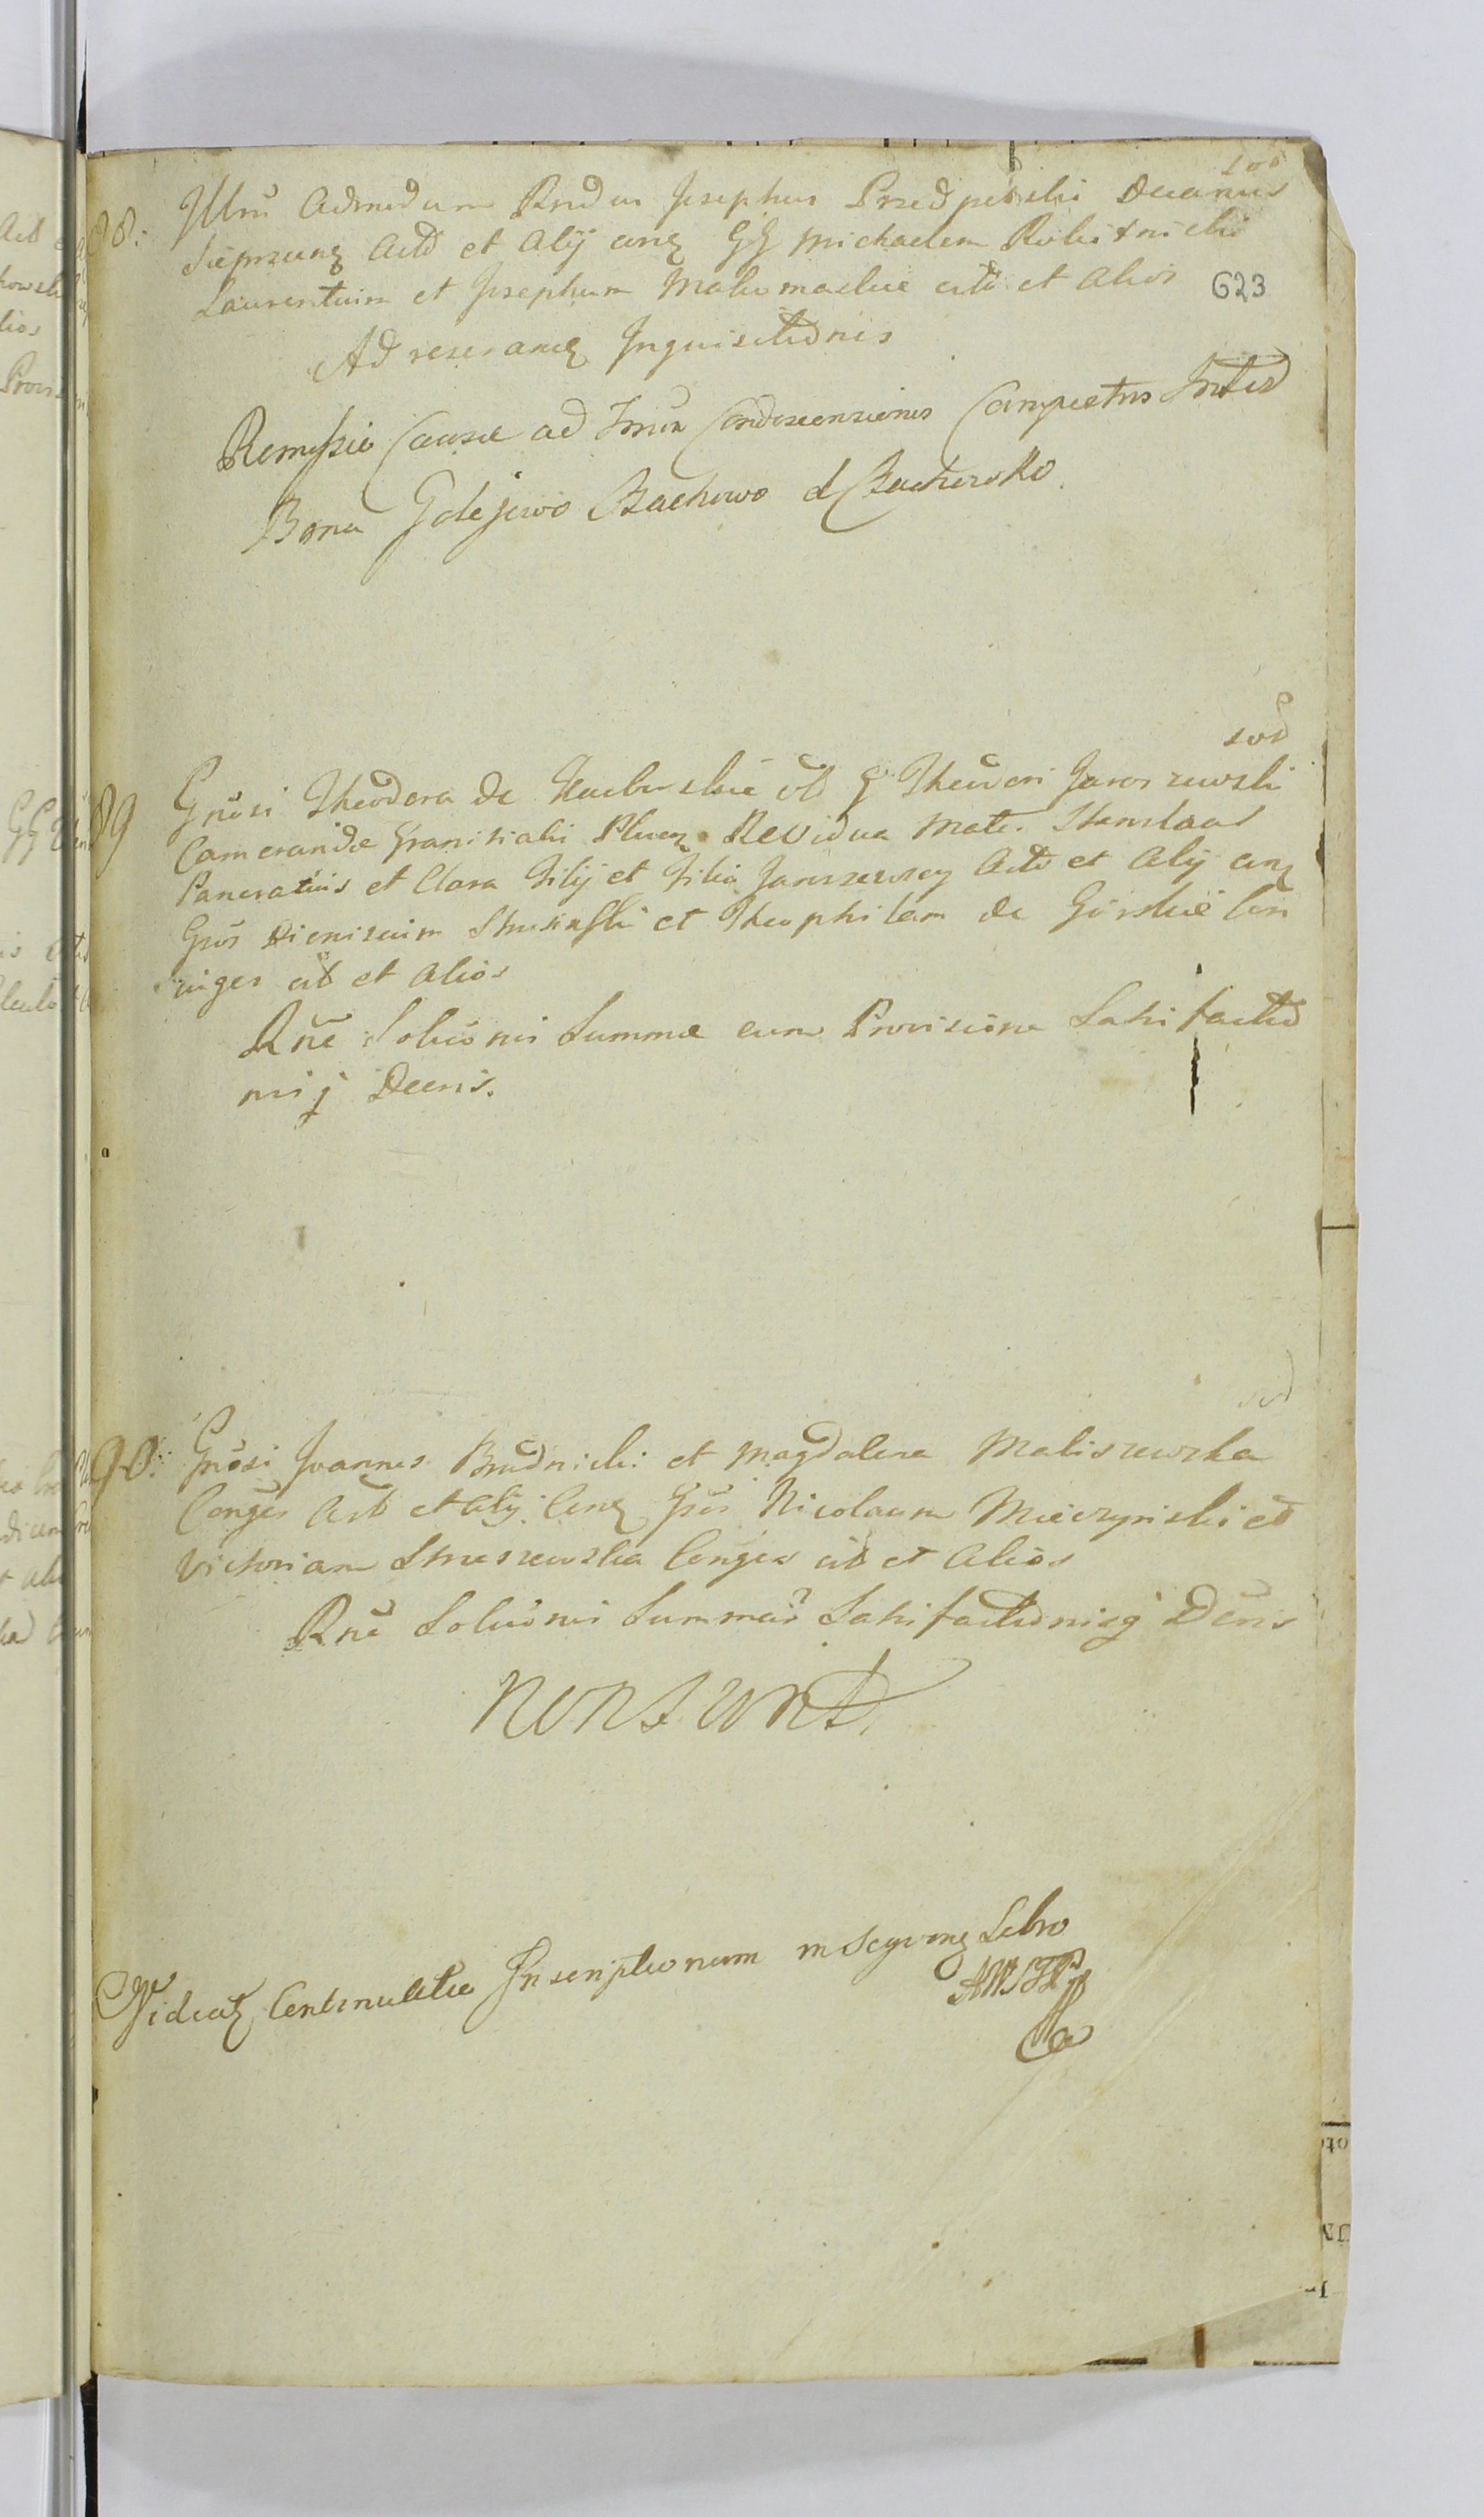 88. Illrũ Admodum Rndus Josephus Przedpełski Decanus
Sieprcenʒ Actõ et Alij conʒ GG Michaelem Robitnicki
623
Laurentium et Josephum Malomaskie citõ et Alios
Ad reseranʒ Inquisitionis
Remissio Causæ ad Condescensionis Campestris Inter
Bona Golejewo Bachowo et Bachorsko
sod
89 Gnosi Theodora de olĩ G Theodori Jaroszewski
Cameraridæ Granitialis Plocenʒ Revidua Mater Stanislaus
Pancratius et Clara Filij et Filia Jaroszewscy Actõ et Alij conʒ
Gsõs Dionisium et Theophilam de Górskie Con
iuges citõ et Alios
Rñe Soluõnis Summæ cum Provisione Satisfactio
nisq Decris.
90. Gnosi Joannes Brudnicki et Magdalena Maliszewska
Conges Actõ et Alij Conʒ Gsõs Nicolaum Mieczynski et
Victoriam Straszewska Conges citõ et Alios
Rñe Soluõnis Summaꝝ Satisfactionisq Dẽris
Non sunt.
Videatʒ Continuatio Inscriptionum in Seqvenʒ Libro